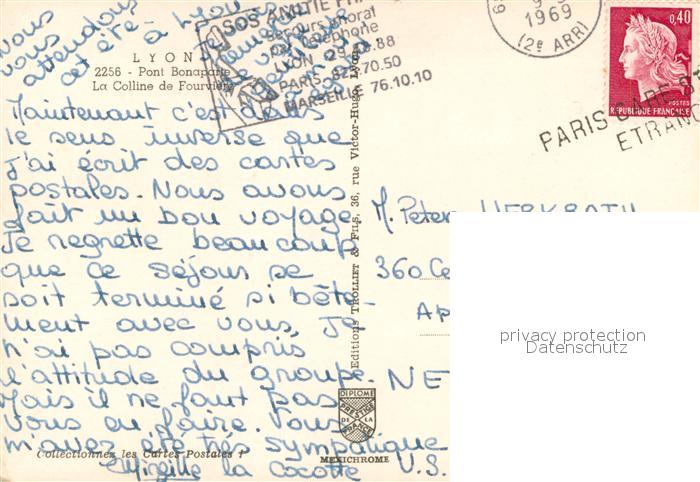 Nous
vous
attendons
cet été à Lyon
SOS AMITIE FRA
secours moral
par téléphone
LYON
PARIS
70.50
MARSEILLE 76.10.10
1969
(2e ARR)
0,40
POSTES
REPUBLIQUE FRANÇAISE
PARIS GARE ST
ETRANG
LYON
2256 - Pont Bonaparte
La Colline de Fourvière
Maintenant c'est dans
le sens inverse que
j'ai écrit des cartes
postales. Nous avons
fait un bon voyage
Je regrette beaucoup
que ce séjour se
soit terminé si bête-
ment avec vous, je
n'ai pas compris
l'attitude du groupe.
Mais il ne faut pas
vous en faire. Vous
m'avez été très sympatique
Mireille la Cocotte
Collectionnez les Cartes Postales !
Editions TROLLIET & FILS, 36, rue Victor-Hugo, Lyon
DIPLOME
PRESTIGE
DE LA
FRANCE
MEXICHROME
M. Peter
360 Ce
Ap
NE
U.S.
privacy protection
Datenschutz